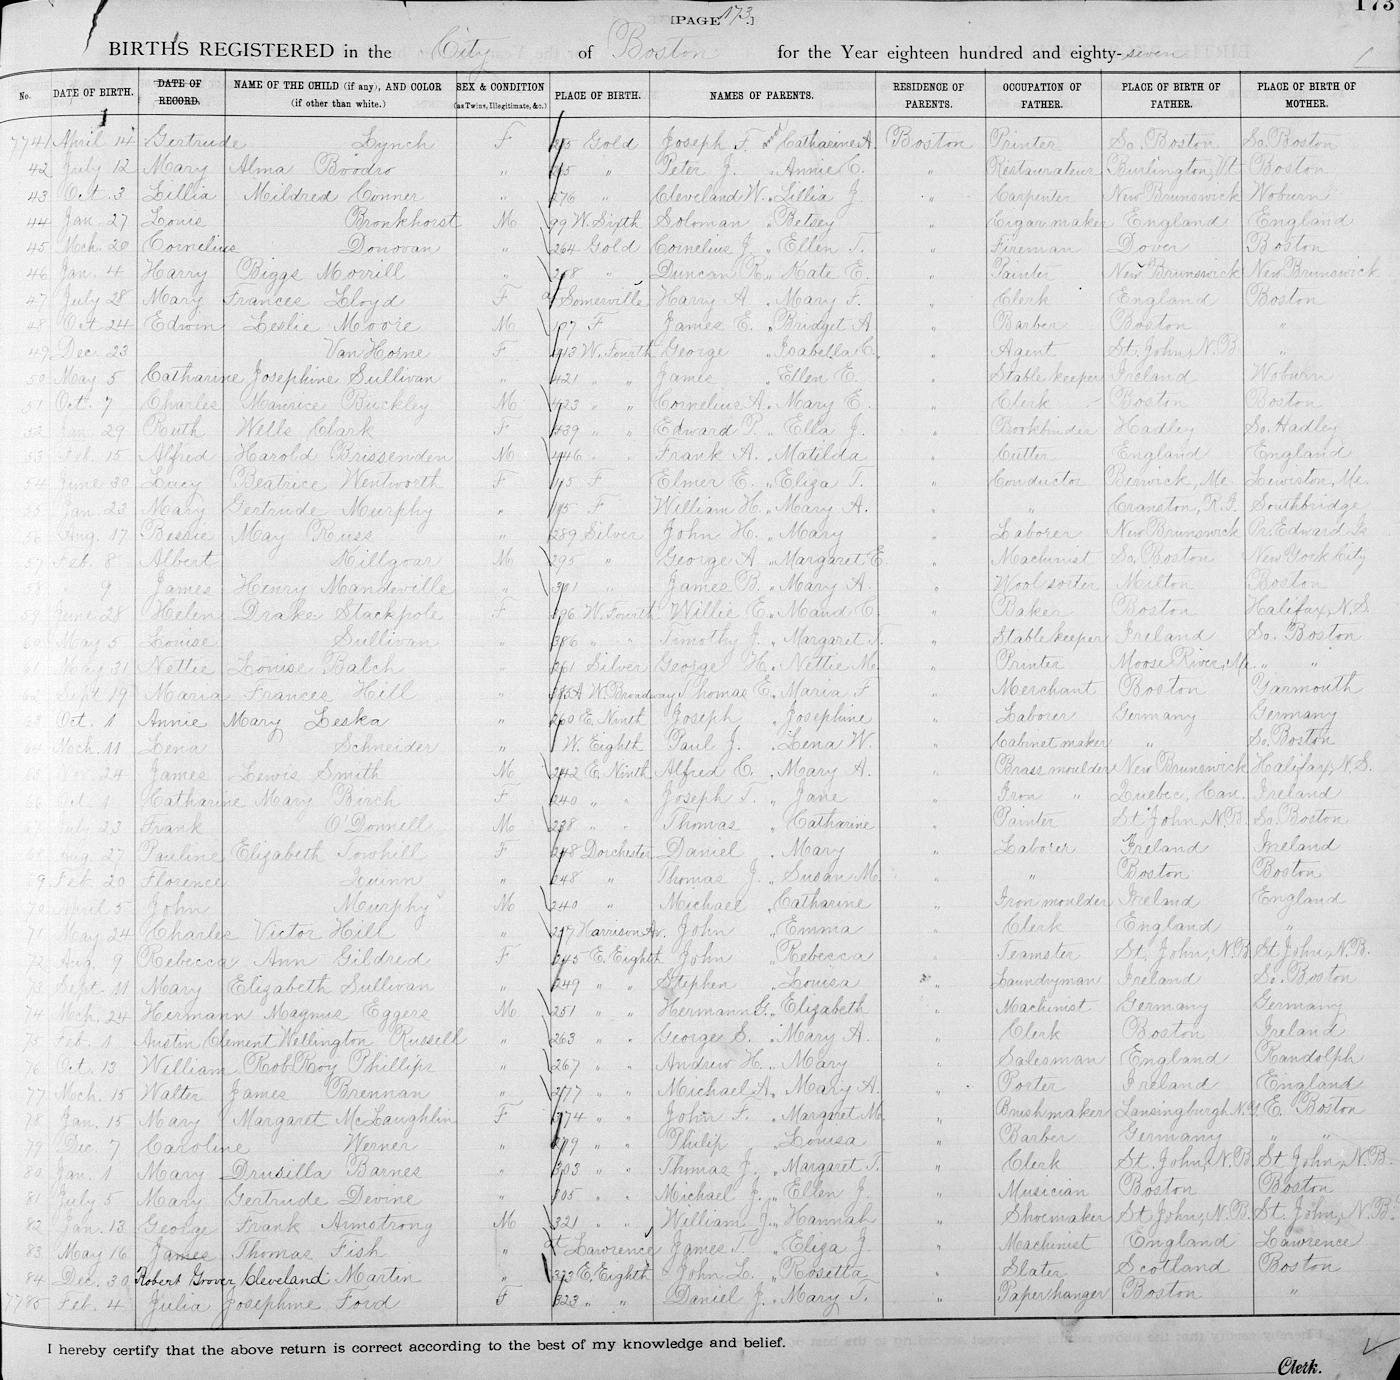 173
[PAGE 173.]
BIRTHS REGISTERED in the City of Boston for the Year eighteen hundred and eighty-seven
No. DATE OF BIRTH. DATE OF RECORD. NAME OF THE CHILD (if any), AND COLOR (if other than white.) SEX & CONDITION (as Twins, Illegitimate, &c.) PLACE OF BIRTH. NAMES OF PARENTS. RESIDENCE OF PARENTS. OCCUPATION OF FATHER. PLACE OF BIRTH OF FATHER. PLACE OF BIRTH OF MOTHER.
7741 April 14 Gertrude Lynch F Gold Joseph F. & Catharine A. Boston Printer So. Boston So. Boston
42 July 12 Mary Alma Boodro " " Peter J. " Annie C. " Restaurateur Burlington, Vt Boston
43 Oct. 3 Lillia Mildred Conner " 276 " Cleveland W. " Lillia J. " Carpenter New Brunswick Woburn
44 Jan. 27 Louis Bronkhorst M 99 W. Sixth Soloman " Betsey " Cigar maker England England
45 Mch. 20 Cornelius Donovan " 264 Gold Cornelius J. " Ellen T. " Fireman Dover Boston
46 Jan. 4 Harry Biggs Morrill " " Duncan R. " Kate E. " Painter New Brunswick New Brunswick
47 July 28 Mary Frances Lloyd F at Somerville Harry A " Mary F. " Clerk England Boston
48 Oct 24 Edwin Leslie Moore M 107 F James E. " Bridget A " Barber Boston "
49 Dec. 23 Van Horne F 413 W. Fourth George " Isabella C. " Agent St. John, N.B "
50 May 5 Catharine Josephine Sullivan " 421 " " James " Ellen E. " Stable keeper Ireland Woburn
51 Oct. 7 Charles Maurice Buckley M 423 " " Cornelius A. " Mary E. " Clerk Boston Boston
52 Jan. 29 Ruth Wells Clark F 439 " " Edward P. " Ella J. " Bookbinder Hadley So. Hadley
53 Feb. 15 Alfred Harold Brissenden M 446 " " Frank A. " Matilda " Cutter England England
54 June 30 Lucy Beatrice Wentworth F 115 F Elmer E. " Eliza T. " Conductor Berwick, Me. Lewiston, Me.
55 Jan. 23 Mary Gertrude Murphy " 115 F William H. " Mary A. " " Cranston, R.I. Southbridge
56 Aug. 17 Bessie May Russ " 289 Silver John H. " Mary " Laborer New Brunswick Pr. Edward Is
57 Feb. 8 Albert Killgoar M 295 " George A. " Margaret E. " Machinist So. Boston New York City
58 " 9 James Henry Mandeville " 301 " James B. " Mary A. " Wool sorter Milton Boston
59 June 28 Helen Drake Stackpole F 396 W. Fourth Willie E. " Maud C. " Baker Boston Halifax, N.S.
60 May 5 Louise Sullivan " 386 " " Timothy J. " Margaret T. " Stable keeper Ireland So. Boston
61 May 31 Nettie Louise Balch " 261 Silver George H. " Nettie M. " Printer Moose River, Me. " "
62 Sept 19 Maria Frances Hill " 383A W. Broadway Thomas E. " Maria F " Merchant Boston Yarmouth
63 Oct. 1 Annie Mary Leska " 260 E. Ninth Joseph " Josephine " Laborer Germany Germany
64 Mch. 11 Lena Schneider " W. Eighth Paul J. " Lena W. " Cabinet maker " So. Boston
65 Nov. 24 James Lewis Smith M 242 E. Ninth Alfred C. " Mary A. " Brass moulder New Brunswick Halifax, N.S.
66 Oct. 1 Catharine Mary Birch F 240 " " Joseph T. " Jane " Iron " Quebec, Can. Ireland
67 July 23 Frank O'Donnell M 238 " " Thomas " Catharine " Painter St John, N.B. So. Boston
68 Aug. 27 Pauline Elizabeth Towhill F 248 Dorchester Daniel " Mary " Laborer Ireland Ireland
69 Feb. 20 Florence Quinn " 248 " Thomas J. " Susan M. " " Boston Boston
70 April 5 John Murphy M 240 " Michael " Catharine " Iron moulder Ireland England
71 May 24 Charles Victor Hill " Harrison Av. John " Emma " Clerk England "
72 Aug. 9 Rebecca Ann Gildred F 245 E. Eighth John " Rebecca " Teamster St. John, N.B. St. John, N.B.
73 Sept. 11 Mary Elizabeth Sullivan " 249 " " Stephen " Louisa " Laundryman Ireland So. Boston
74 Mch. 24 Hermann Magnus Eggers M 251 " " Hermann G. " Elizabeth " Machinist Germany Germany
75 Feb. 1 Austin Clement Wellington Russell " 263 " " George S. " Mary A. " Clerk Boston Ireland
76 Oct. 13 William Rob Roy Phillips " 267 " " Andrew H. " Mary " Salesman England Randolph
77 Mch. 15 Walter James Brennan " 277 " " Michael A. " Mary A. " Porter Ireland England
78 Jan. 15 Mary Margaret McLaughlin F 274 " " John F. " Margaret M. " Brush maker Lansingburgh N.Y. E. Boston
79 Dec. 7 Caroline Werner " 279 " " Philip " Louisa " Barber Germany " "
80 Jan. 1 Mary Drusilla Barnes " 303 " " Thomas J. " Margaret T. " Clerk St. John, N.B. St John, N.B.
81 July 5 Mary Gertrude Devine " 305 " " Michael J. " Ellen J. " Musician Boston Boston
82 Jan. 13 George Frank Armstrong M 321 " " William J. " Hannah " Shoemaker St John, N.B. St. John, N.B.
83 May 16 James Thomas Fish " at Lawrence James T. " Eliza J. " Machinist England Lawrence
84 Dec. 30 Robert Grover Cleveland Martin " 323 E. Eighth John L. " Rosetta " Slater Scotland Boston
7785 Feb. 4 Julia Josephine Ford F 323 " " Daniel J. " Mary T. " Paper hanger Boston "
I hereby certify that the above return is correct according to the best of my knowledge and belief.
Clerk.